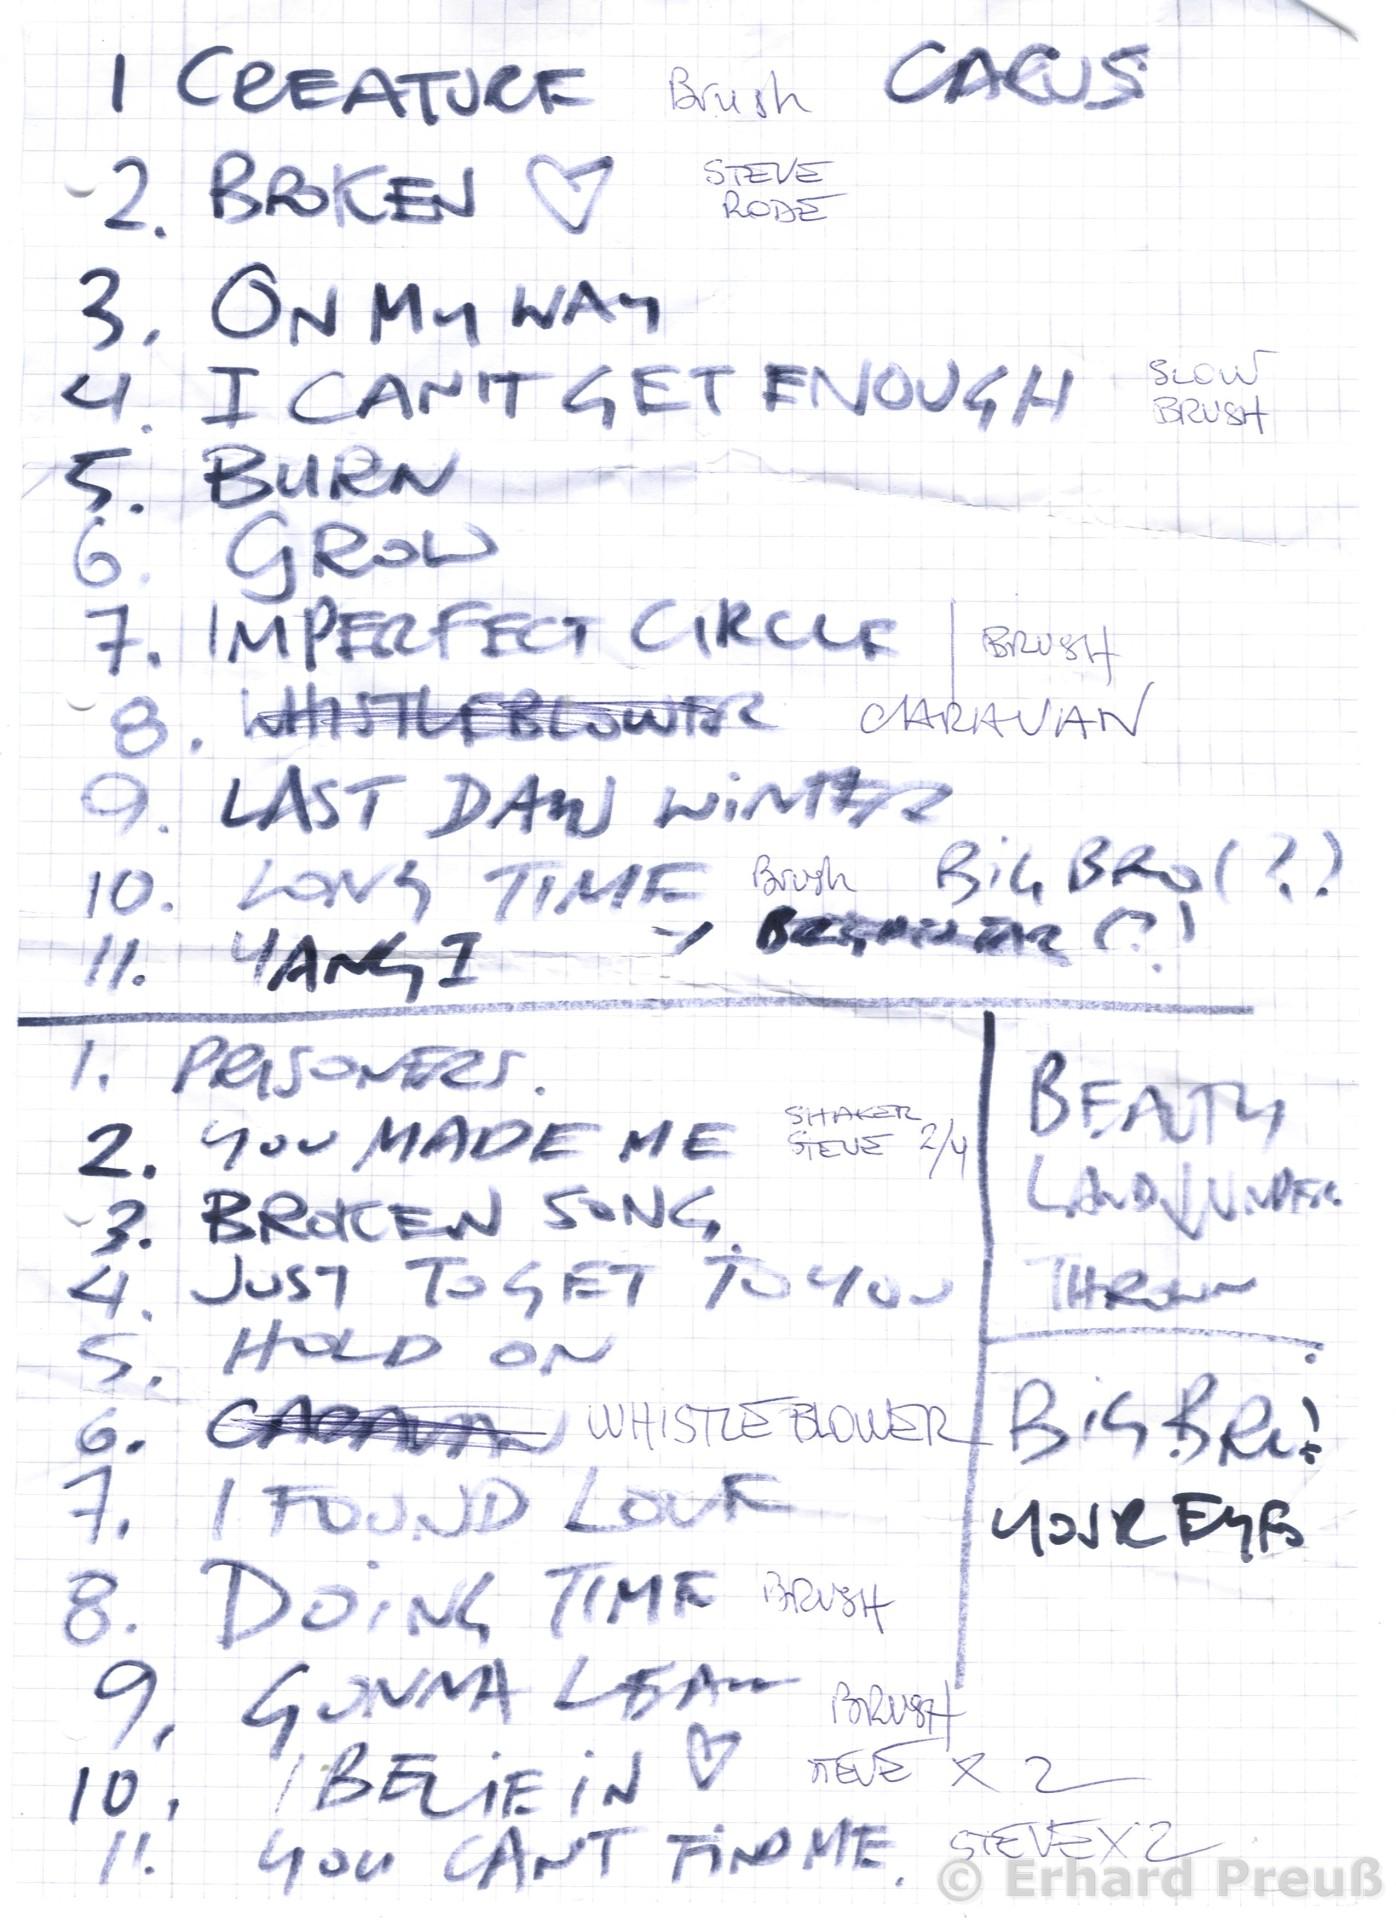 1 CREATURE Brush CACUS
2. BROKEN ♡ STEVE
RODE
3. ON MY WAY
4. I CAN'T GET ENOUGH SLOW
BRUSH
5. BURN
6. GROW
7. IMPERFECT CIRCLE | BRUSH
8. WHISTLEBLOWER CARAVAN
9. LAST DAY WINTER
10. LONG TIME Brush BIG BRO (?)
11. YANGI (?)
1. PRISONERS.
2. YOU MADE ME SHAKER
STEVE 2/4
3. BROKEN SONG.
4. JUST TO GET TO YOU
5. HOLD ON
6. CARAVAN WHISTLEBLOWER
7. I FOUND LOVE
8. DOING TIME BRUSH
9. GONNA BRUSH
10. I BELIE IN ♡ STEVE X 2
11. YOU CAN'T FIND ME. STEVE X 2
BEAUTY
UNDER
THROWN
BIG BRO!
YOUR EYES
© Erhard Preuß